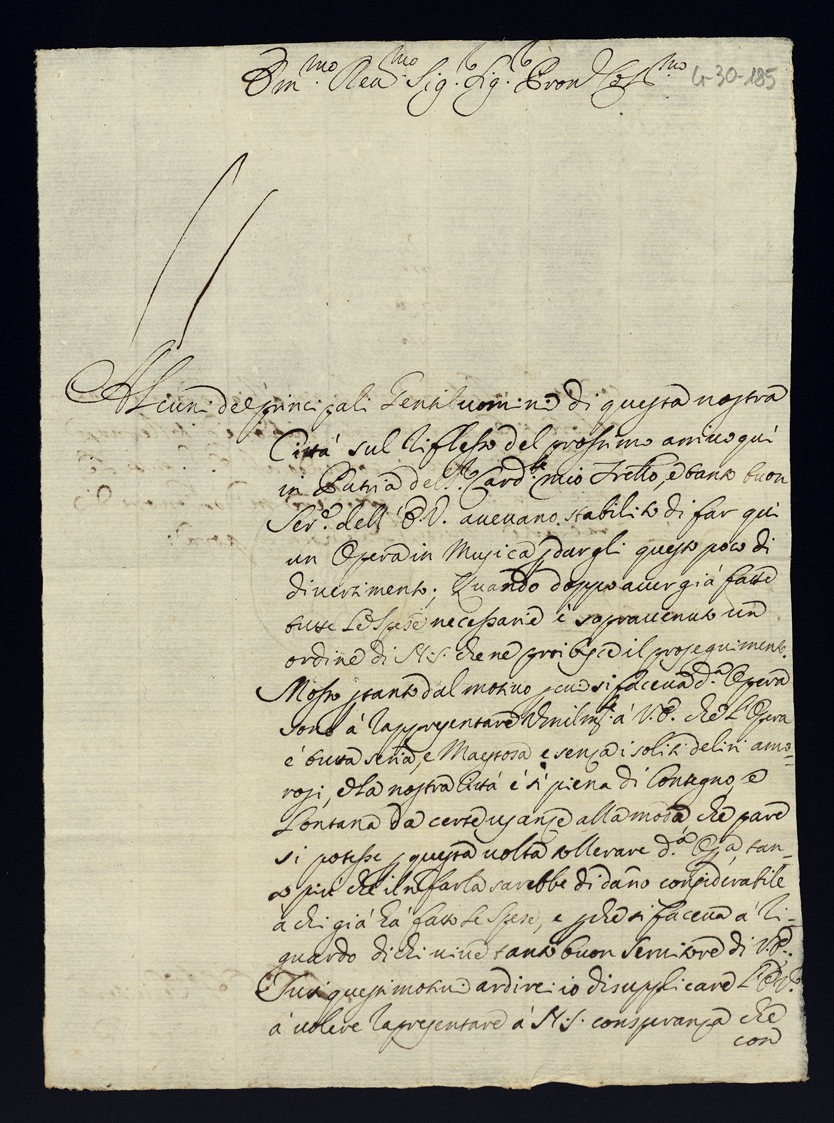 Em.mo Reu.mo Sig.r Sig.r Pron Col.mo
G-30-185
Alcuni de principali Gentiluomini di questa nostra
Città sul riflesso del prossimo arriuo qui
in Patria dell. Card.le mio Frello, e tanto buon
Ser.e dell' E.V. aueuano stabilito di far qui
un Opera in Musica p dargli questo poco di
diuertimento; Quando doppo auer già fatte
tutte le Spese necessarie è soprauenuto un
ordine di N.S. che ne proibisce il proseguimento.
Mosso p tanto dal motiuo p cui si faceua d.a Opera
sono à rappresentare Vmilm.te à V.E. che L'Opera
è tutta seria, e Maestosa e senza i soliti deliri amo-
rosi, e la nostra Città è sì piena di Contegno, e
Lontana da certe usanze alla moda che pare
si potesse p questa uolta tollerare d.a Op.a, tan-
to più che il n farla sarebbe di dano considerabile
à chi già hà fatto le Spese, e p che si faceua à ri-
guardo di chi uiue tanto buon seruitore di V.E.
Tutti questi motiui ardirei io di supplicare L'E.V.
à uolere rapresentare à N.S. con speranza che
con